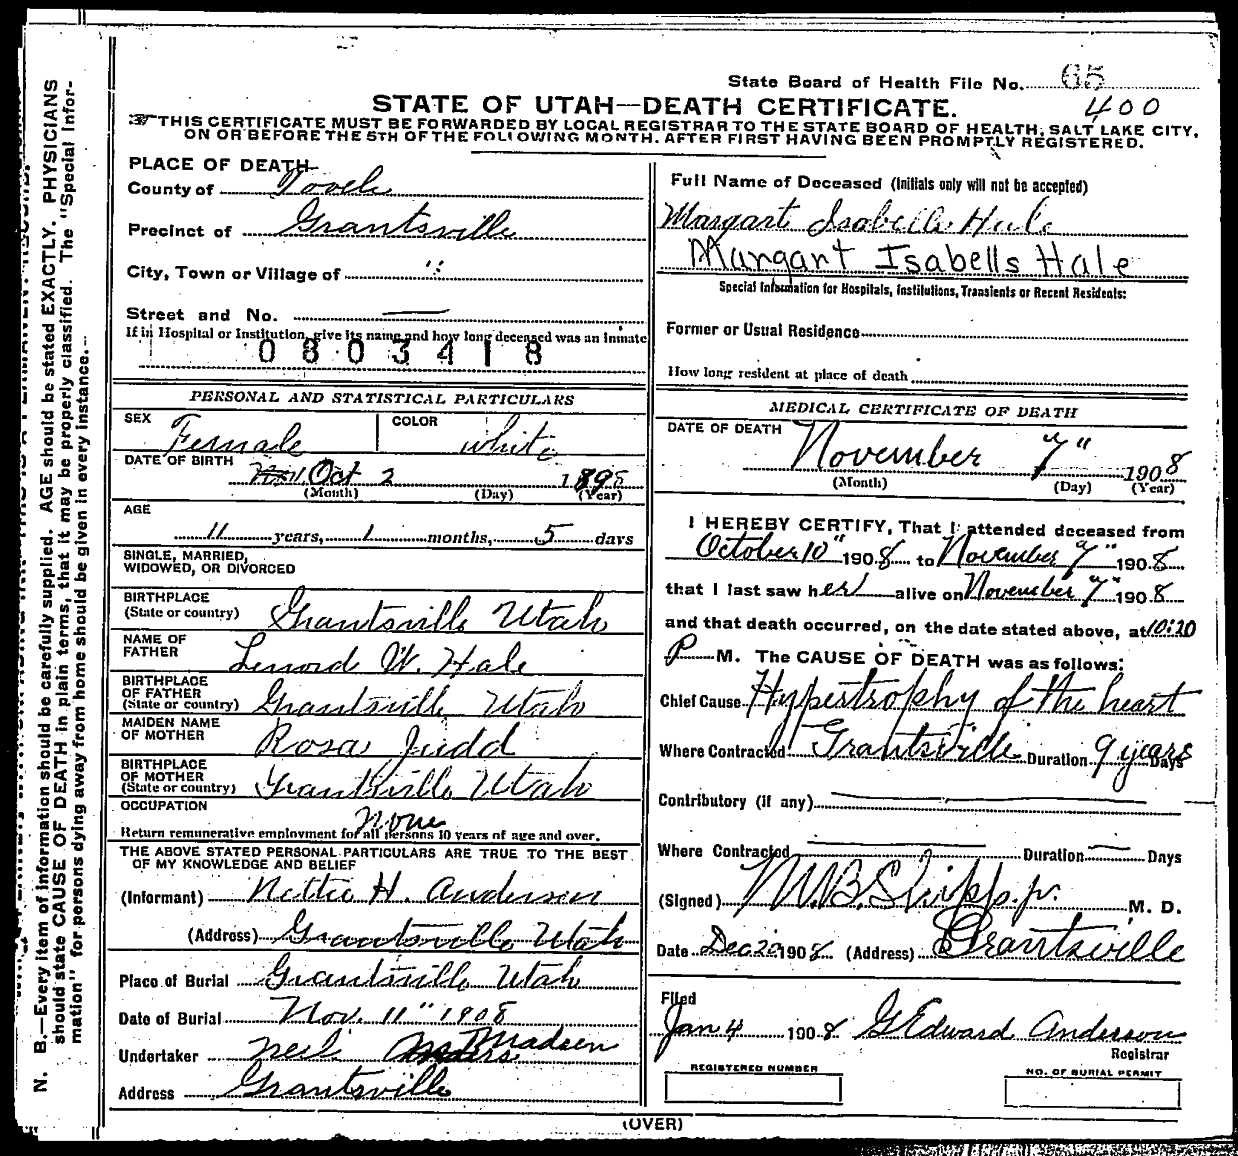 State Board of Health File No. 65
400
STATE OF UTAH—DEATH CERTIFICATE.
THIS CERTIFICATE MUST BE FORWARDED BY LOCAL REGISTRAR TO THE STATE BOARD OF HEALTH, SALT LAKE CITY,
ON OR BEFORE THE 5TH OF THE FOLLOWING MONTH. AFTER FIRST HAVING BEEN PROMPTLY REGISTERED.
N. B.—Every item of information should be carefully supplied. AGE should be stated EXACTLY. PHYSICIANS
should state CAUSE OF DEATH in plain terms, that it may be properly classified. The "Special Infor-
mation" for persons dying away from home should be given in every instance.
PLACE OF DEATH
County of Tooele
Precinct of Grantsville
City, Town or Village of "
Street and No. —
If in Hospital or Institution, give its name and how long deceased was an inmate
0803418
PERSONAL AND STATISTICAL PARTICULARS
SEX Female COLOR white
DATE OF BIRTH Nov. Oct 2 1898
(Month) (Day) (Year)
AGE
11 years, 1 months, 5 days
SINGLE, MARRIED,
WIDOWED, OR DIVORCED
BIRTHPLACE
(State or country) Grantsville Utah
NAME OF
FATHER W. Hale
BIRTHPLACE
OF FATHER
(State or country) Grantsville Utah
MAIDEN NAME
OF MOTHER Rosa Judd
BIRTHPLACE
OF MOTHER
(State or country) Grantsville Utah
OCCUPATION None
Return remunerative employment for all persons 10 years of age and over.
THE ABOVE STATED PERSONAL PARTICULARS ARE TRUE TO THE BEST
OF MY KNOWLEDGE AND BELIEF
(Informant) Nettie H. Anderson
(Address) Grantsville Utah
Place of Burial Grantsville Utah
Date of Burial Nov. 11" 1908
Undertaker Neil Madsen
Address Grantsville
Full Name of Deceased (Initials only will not be accepted)
Margart Isabells Hale
Margart Isabells Hale
Special Information for Hospitals, Institutions, Transients or Recent Residents:
Former or Usual Residence
How long resident at place of death
MEDICAL CERTIFICATE OF DEATH
DATE OF DEATH November 7" 1908
(Month) (Day) (Year)
I HEREBY CERTIFY, That I attended deceased from
October 10" 1908 to November 7" 1908
that I last saw her alive on November 7" 1908
and that death occurred, on the date stated above, at 10:20
P M. The CAUSE OF DEATH was as follows:
Chief Cause Hypertrophy of the heart
Where Contracted Grantsville Duration 9 years Days
Contributory (if any) —
Where Contracted — Duration — Days
(Signed) M. D.
Date Dec 20 1908 (Address) Grantsville
Filed
Jan 4 1908 G Edward Anderson
Registrar
REGISTERED NUMBER
NO. OF BURIAL PERMIT
(OVER)